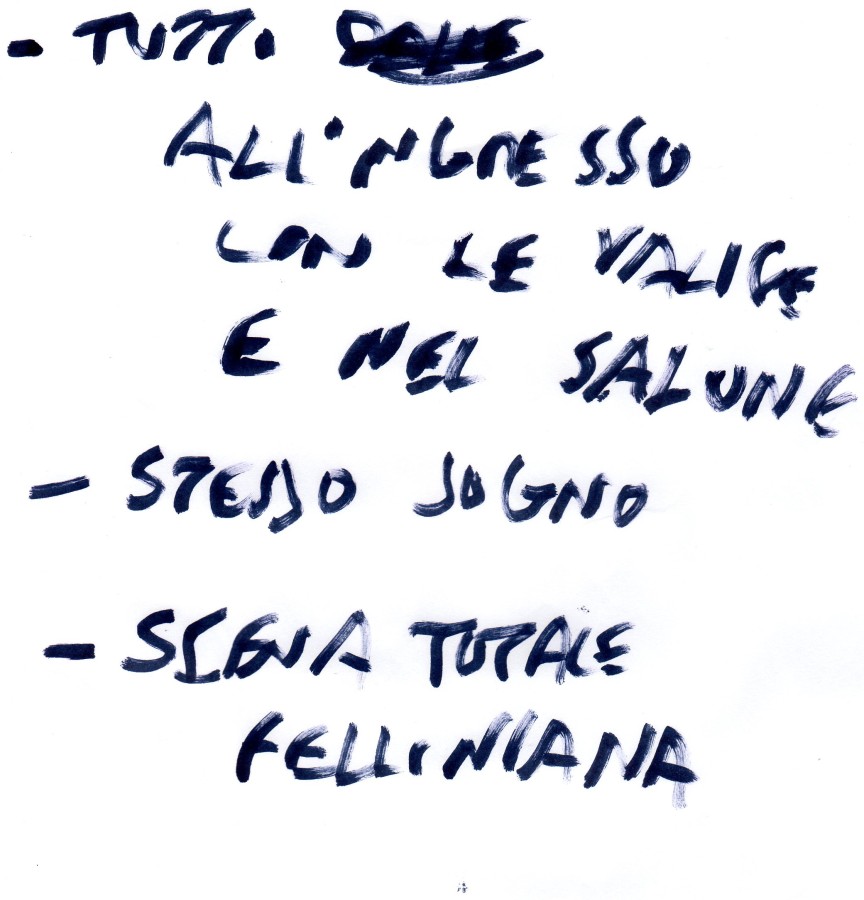 - TUTTI
ALL'INGRESSO
CON LE VALIGE
E NEL SALONE
- STESSO SOGNO
- SCENA TOTALE
FELLINIANA